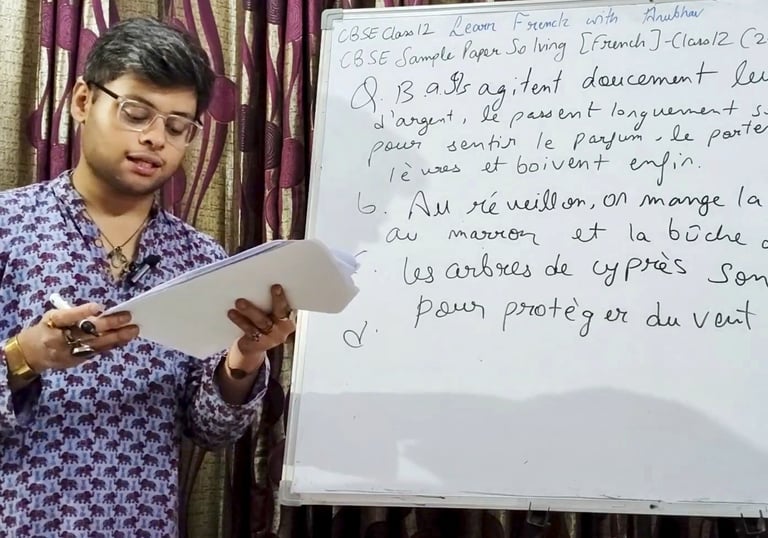 CBSE Class 12 Learn French with Anubhav
CBSE Sample Paper Solving [French] - Class 12 (2
Q. B. a. Ils agitent doucement leu
d'argent, le passent longuement s
pour sentir le parfum, le porte
lèvres et boivent enfin.
b. Au réveillon, on mange la
au marron et la bûche d
c. les arbres de cyprès son
pour protèger du vent
d.